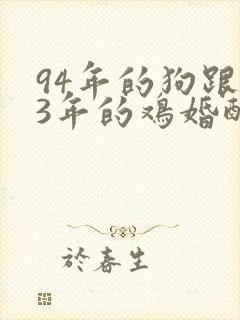 94年的狗跟
3年的鸡婚配
於春生